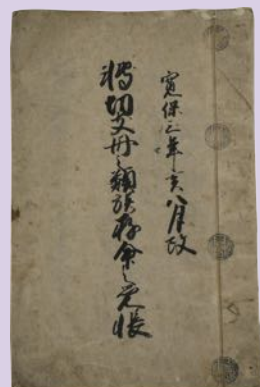 寛保三年亥八月改
轉切支丹之類族存命之覚帳